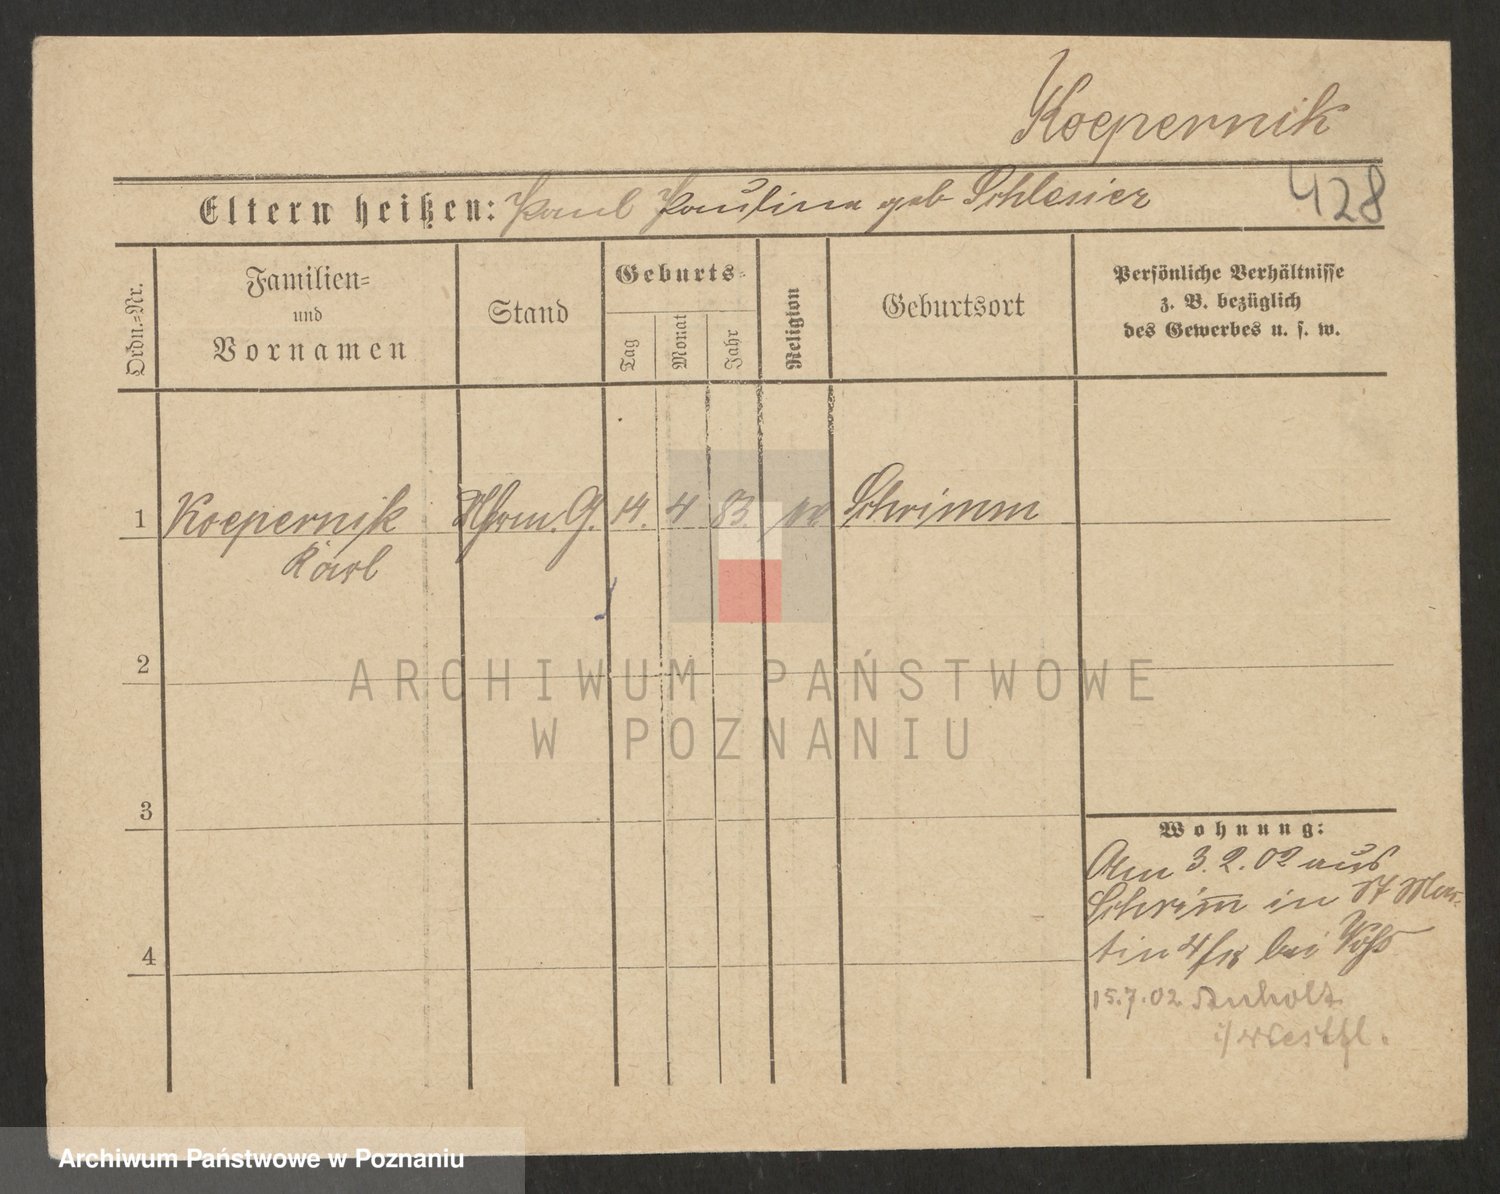 Koepernik
Eltern heißen: Paul Paulina geb Schlesier
428
Ordn.-Nr.
Familien-
und
Vornamen
Stand
Geburts-
Tag
Monat
Jahr
Religion
Geburtsort
Persönliche Verhältnisse
z. B. bezüglich
des Gewerbes u. s. w.
1 Koepernik G. 14. 4 83. Schrimm
Karl
2
3
4
Wohnung:
Am 3.2.02 aus
Schrim̅ in St Mar-
tin bei
15.7.02 Anholt
i/Westfl.
ARCHIWUM PAŃSTWOWE
W POZNANIU
Archiwum Państwowe w Poznaniu